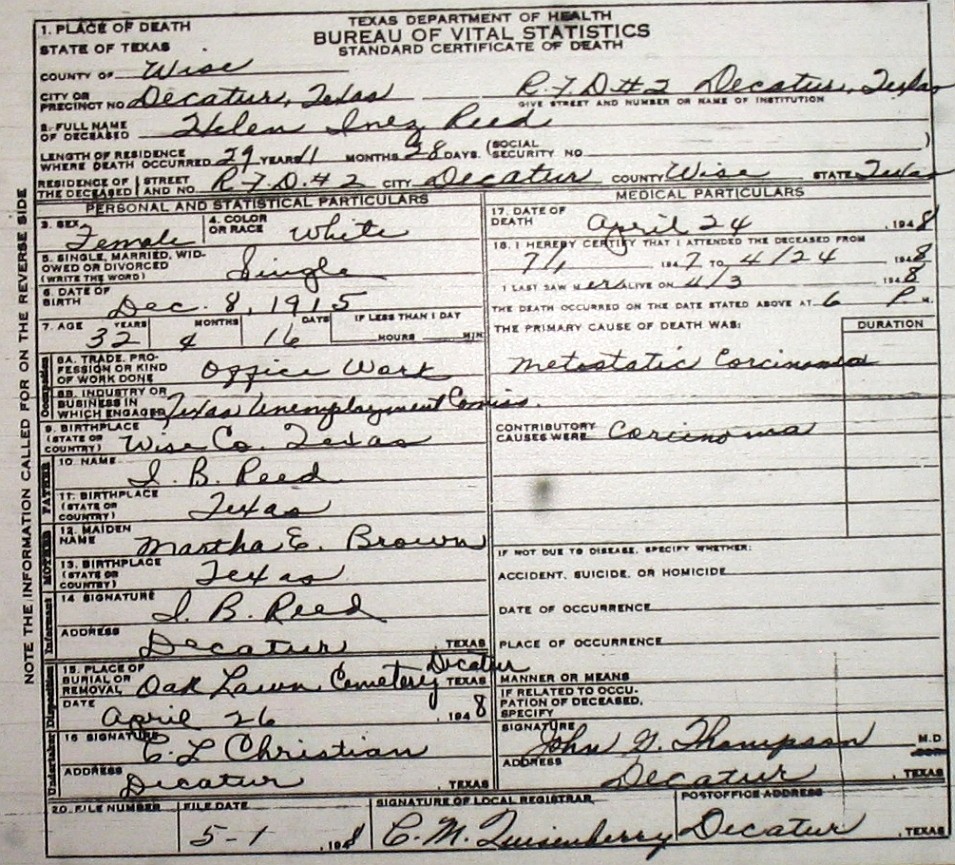 TEXAS DEPARTMENT OF HEALTH
BUREAU OF VITAL STATISTICS
STANDARD CERTIFICATE OF DEATH
1. PLACE OF DEATH
STATE OF TEXAS
COUNTY OF Wise
CITY OR PRECINCT NO Decatur, Texas R.F.D.#2 Decatur, Texas
GIVE STREET AND NUMBER OR NAME OF INSTITUTION
2. FULL NAME OF DECEASED Helen Inez Reed
LENGTH OF RESIDENCE WHERE DEATH OCCURRED 29 YEARS 11 MONTHS 28 DAYS. (SOCIAL SECURITY NO )
RESIDENCE OF THE DECEASED STREET AND NO. R.F.D.#2 CITY Decatur COUNTY Wise STATE Texas
PERSONAL AND STATISTICAL PARTICULARS
3. SEX Female 4. COLOR OR RACE White
5. SINGLE, MARRIED, WIDOWED OR DIVORCED (WRITE THE WORD) Single
6. DATE OF BIRTH Dec. 8, 1915
7. AGE YEARS 32 MONTHS 4 DAYS 16 IF LESS THAN 1 DAY HOURS MIN
Occupation
8A. TRADE, PROFESSION OR KIND OF WORK DONE Office Work
8B. INDUSTRY OR BUSINESS IN WHICH ENGAGED Texas Unemployment Comiss.
9. BIRTHPLACE (STATE OR COUNTRY) Wise Co. Texas
FATHER
10. NAME I. B. Reed
11. BIRTHPLACE (STATE OR COUNTRY) Texas
MOTHER
12. MAIDEN NAME Martha E. Brown
13. BIRTHPLACE (STATE OR COUNTRY) Texas
Informant
14 SIGNATURE I. B. Reed
ADDRESS Decatur, TEXAS
Disposition
15. PLACE OF BURIAL OR REMOVAL Oak Lawn Cemetery Decatur TEXAS
DATE April 26, 1948
Undertaker
16 SIGNATURE C L Christian
ADDRESS Decatur, TEXAS
MEDICAL PARTICULARS
17. DATE OF DEATH April 24, 1948
18. I HEREBY CERTIFY THAT I ATTENDED THE DECEASED FROM
7/1 1947 TO 4/24 1948
I LAST SAW HER ALIVE ON 4/3 1948
THE DEATH OCCURRED ON THE DATE STATED ABOVE AT 6 P M.
THE PRIMARY CAUSE OF DEATH WAS: DURATION
Metostatic Corcinoma
CONTRIBUTORY CAUSES WERE Corcinoma
IF NOT DUE TO DISEASE, SPECIFY WHETHER:
ACCIDENT, SUICIDE, OR HOMICIDE
DATE OF OCCURRENCE
PLACE OF OCCURRENCE
MANNER OR MEANS
IF RELATED TO OCCUPATION OF DECEASED, SPECIFY
SIGNATURE John G. Thompson M.D.
ADDRESS Decatur, TEXAS
20. FILE NUMBER FILE DATE 5-1, 1948 SIGNATURE OF LOCAL REGISTRAR C. M. Quisenberry POSTOFFICE ADDRESS Decatur, TEXAS
NOTE THE INFORMATION CALLED FOR ON THE REVERSE SIDE